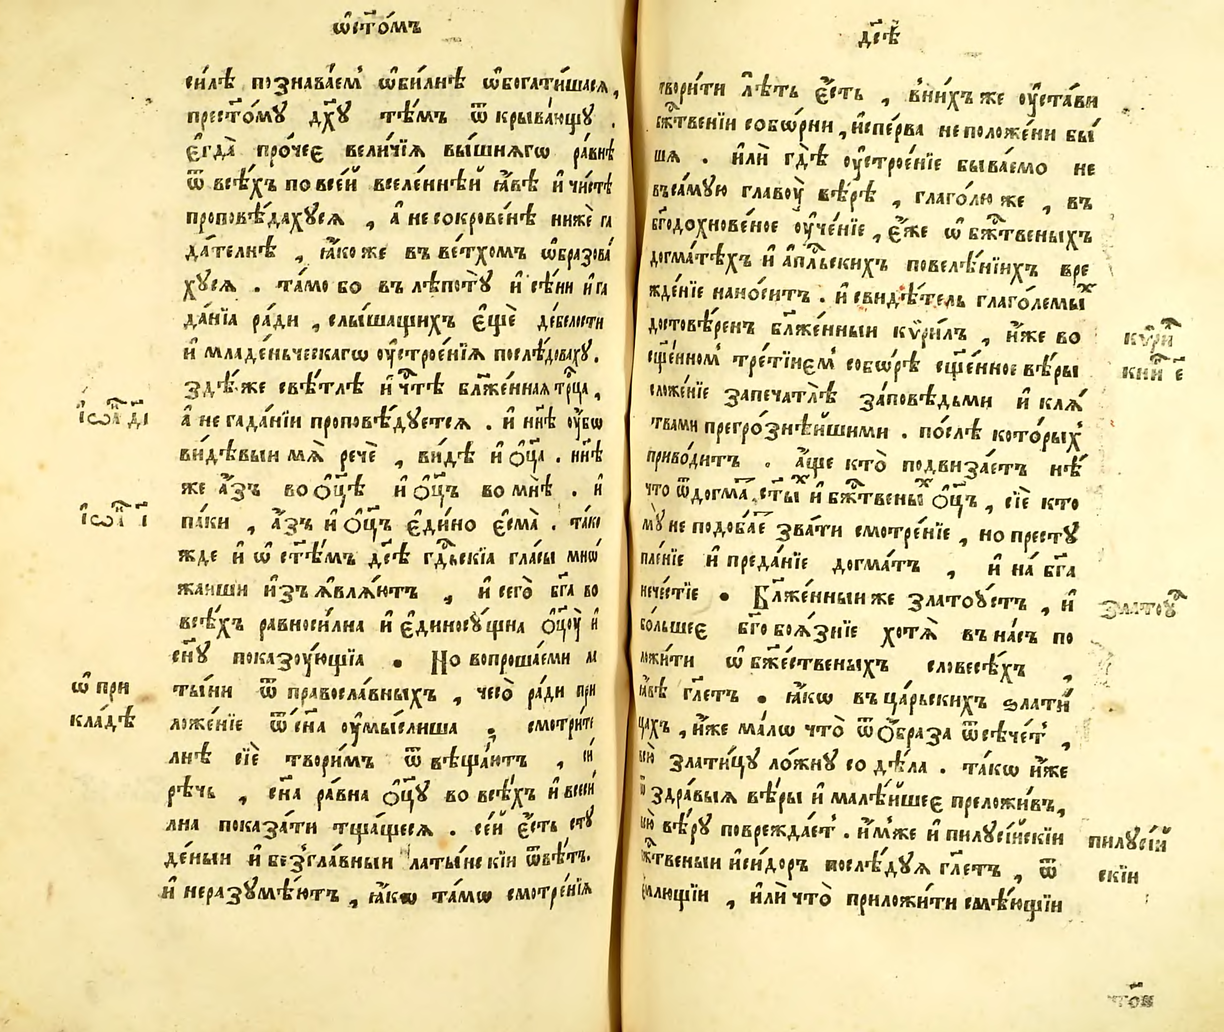 ѡ҆ст҃о́мъ
си́лѣ познава́ем̾ ѡ҆би́лнѣ ѡ҆богати́шасѧ,
прест҃о́мꙋ дх҃ꙋ тѣ́мъ ѿкрыва́ющꙋ .
є҆гда̀ про́чеє вели́чїѧ вы́шнѧгѡ ра́внѣ
ѿ всѣ́хъ по все́й вселе́ннѣй ꙗ҆́вѣ и҆ чи́стѣ
проповѣ́дахꙋсѧ , а҆ не сокрове́нѣ нижѐ га
да́телнѣ , ꙗ҆́коже въ ве́тхомъ ѡ҆бразова́
хꙋсѧ . та́мо бо въ лѣ́потꙋ и҆ сѣ́ни и҆ га
да́нїа ра́ди , слы́шащихъ є҆щѐ де́белости
и҆ младе́ньческагѡ ᲂу҆строе́нїѧ послѣ́довахꙋ.
здѣ́ же свѣ́тлѣ и҆ чⷭ҇тѣ бл҃же́ннаѧ трⷪ҇ца ,
і҆ѡⷩ҇ д҃і
а҆ не гада́нїи проповѣ́дꙋетсѧ . и҆ нн҃ѣ ᲂу҆́бѡ
ви́дѣвыи мѧ̀ речѐ , ви́дѣ и҆ ѻ҆ц҃а̀ . нн҃ѣ
же а҆́зъ во ѻ҆ц҃ѣ̀ и҆ ѻ҆ц҃ъ во мнѣ̀ . и҆
і҆ѡⷩ҇ і҃
па́ки , а҆́зъ и҆ ѻ҆ц҃ъ є҆ди́но є҆сма̀ . та́ко
жде и҆ ѡ҆ ст҃ѣ́мъ дс҃ѣ гдⷭ҇ьскїа гла́сы мнѡ́
жаиши и҆зъѧвлѧ́ютъ , и҆ сего̀ бг҃а во
всѣ́хъ равноси́лна и҆ є҆диносꙋ́щна ѻ҆ц҃ꙋ̀ и҆
сн҃ꙋ показꙋ́ющїа . Но вопроша́еми ла
ѡ҆ при
ты́ни ѿ правосла́вныхъ , чесо̀ ра́ди при
кла́дѣ
ложе́нїе ѿ сн҃а ᲂу҆мы́слиша ; смотри́те
лнѣ сїѐ твори́мъ ѿвѣща́ютъ , си́
рѣчь , сн҃а ра́вна ѻ҆ц҃ꙋ̀ во всѣ́хъ и҆ всеси́
лна показа́ти тща́щесѧ . се́й є҆́сть стꙋ́
деныи и҆ безгла́вныи латы́нскїи ѿвѣ́тъ.
и҆ не разꙋмѣ́ютъ , ꙗ҆́кѡ та́мѡ смотре́нїѧ
дс҃ѣ
твори́ти лѣ́ть є҆́сть , в̾ ни́хъ же ᲂу҆ста́ви
бж҃твенїи собѡ́рни , и҆спе́рва не положе́ни бы́
шѧ . и҆лѝ гдѣ̀ ᲂу҆строе́нїе быва́емо не
въ са́мꙋю главꙋ̀ вѣ́рѣ , глаго́лю же , въ
бг҃одохнове́ное ᲂу҆че́нїе , є҆́же ѡ҆ бж҃твеныхъ
до́гматѣхъ и҆ а҆пⷭ҇льскихъ повелѣ́нїихъ вре
жде́нїе нано́ситъ . и҆ свидѣ́тель глаго́лемыⷯ
достовѣ́ренъ бл҃же́нныи кѷри́лъ , и҆́же во
кѷри́ⷧ
сщ҃е́нном̾ тре́тїием̾ собѡ́рѣ сщ҃е́нное вѣ́ры
кни́ⷢ є҃
сложе́нїе запечатлѣ̀ за́повѣдьми и҆ клѧ́
твами прегро́знѣйшими . по́слѣ кото́рыхъ
приво́дитъ . а҆́ще кто̀ подвиза́етъ нѣ́
что ѿ до́гмаⷮ , ст҃ы́ⷯ и҆ бж҃твены́ⷯ ѻ҆ц҃ъ , сїѐ кто
мꙋ̀ не подоба́еⷮ зва́ти смотре́нїе , но престꙋ
пле́нїе и҆ преда́нїе до́гматъ , и҆ на бг҃а
нече́стїе . Бл҃же́нныиже златоꙋ́стъ , и҆
златоꙋ́ⷭ
бо́льшеє бг҃обоѧ́знїе хотѧ̀ въ на́съ по
ложи́ти ѡ҆ бж҃е́ственыхъ словесѣ́хъ ,
ꙗ҆́вѣ гл҃етъ . ꙗ҆́кѡ въ ца́рьскихъ ѕлати́
цахъ , и҆́же ма́лѡ что̀ ѿ ѻ҆́браза ѿсѣче́т̾ ,
всю̀ злати́цꙋ ло́жнꙋ содѣ́ла . та́кѡ и҆́же
ѿ здра́выѧ вѣ́ры и҆ малѣ́йшеє преложи́въ,
всю̀ вѣ́рꙋ поврежда́ет̾ . и҆́мже и҆ пилꙋсі́искїи
пилꙋсі́й
скїи
бж҃твеныи и҆си́доръ послѣ́дꙋѧ гл҃етъ , ѿ
е́млющїи , и҆лѝ что̀ приложи́ти смѣ́ющїи